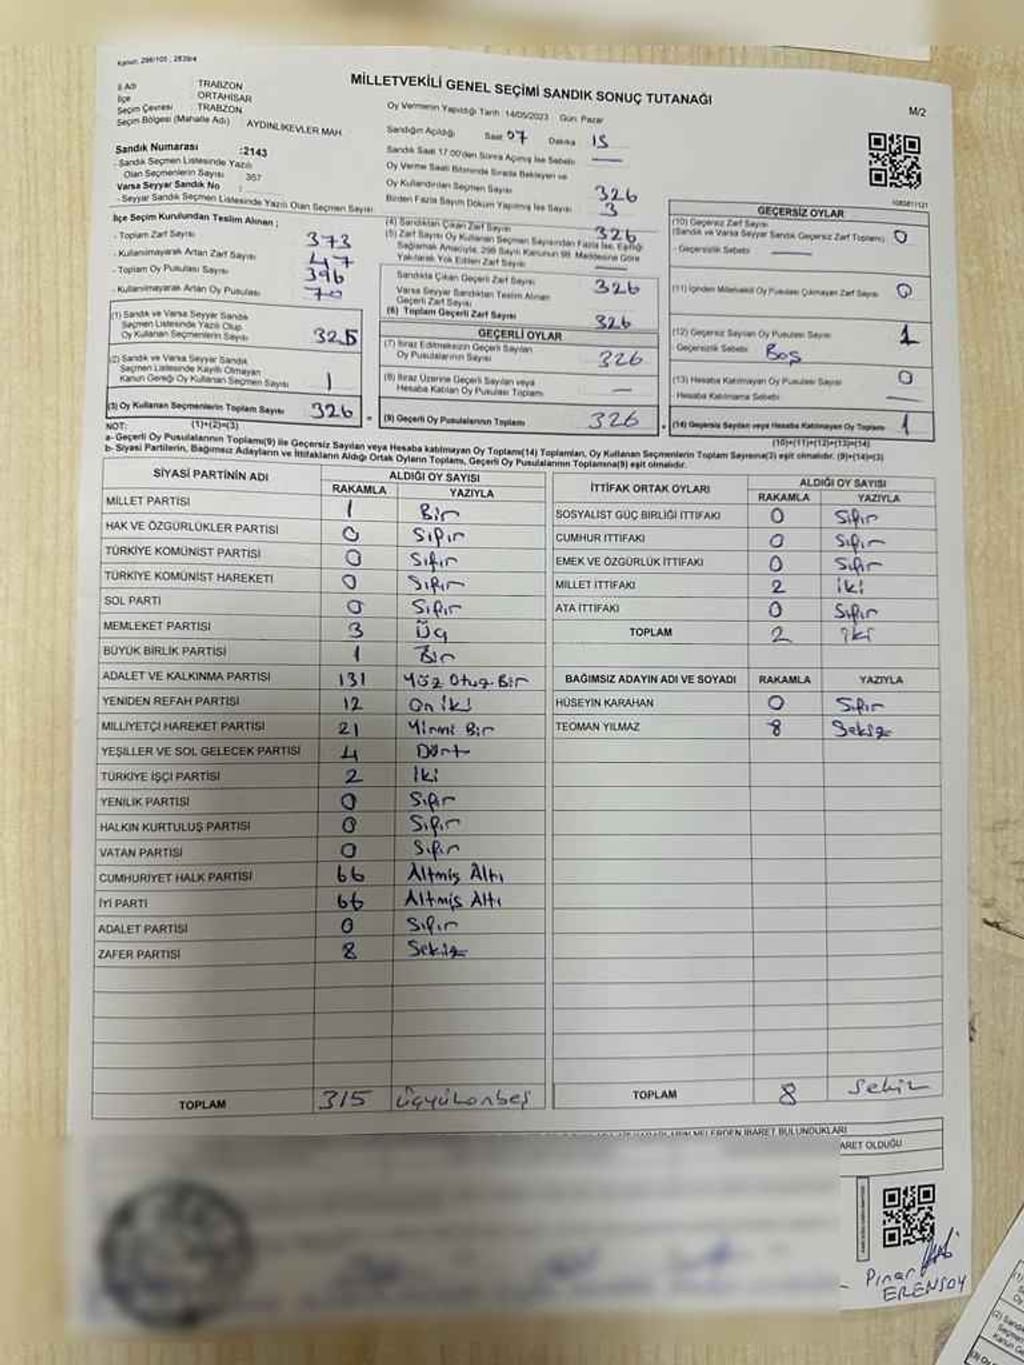 Kanun: 298/105, 2839/4
MİLLETVEKİLİ GENEL SEÇİMİ SANDIK SONUÇ TUTANAĞI
M/2
İl Adı TRABZON
İlçe ORTAHİSAR
Seçim Çevresi TRABZON
Seçim Bölgesi (Mahalle Adı) AYDINLIKEVLER MAH
Sandık Numarası :2143
- Sandık Seçmen Listesinde Yazılı
Olan Seçmenlerin Sayısı : 367
Varsa Seyyar Sandık No :
- Seyyar Sandık Seçmen Listesinde Yazılı Olan Seçmen Sayısı
Oy Vermenin Yapıldığı Tarih :14/05/2023 Gün: Pazar
Sandığın Açıldığı Saat 07 Dakika 15
Sandık Saat 17.00'den Sonra Açılmış İse Sebebi —
Oy Verme Saati Bitiminde Sırada Bekleyen ve
Oy Kullandırılan Seçmen Sayısı 326
Birden Fazla Sayım Döküm Yapılmış İse Sayısı 3
1083811121
İlçe Seçim Kurulundan Teslim Alınan ;
- Toplam Zarf Sayısı 373
- Kullanılmayarak Artan Zarf Sayısı 47
- Toplam Oy Pusulası Sayısı 396
- Kullanılmayarak Artan Oy Pusulası 70
(1) Sandık ve Varsa Seyyar Sandık
Seçmen Listesinde Yazılı Olup
Oy Kullanan Seçmenlerin Sayısı 325
(2) Sandık ve Varsa Seyyar Sandık
Seçmen Listesinde Kayıtlı Olmayan
Kanun Gereği Oy Kullanan Seçmen Sayısı 1
(3) Oy Kullanan Seçmenlerin Toplam Sayısı 326
(1)+(2)=(3)
(4) Sandıktan Çıkan Zarf Sayısı 326
(5) Zarf Sayısı Oy Kullanan Seçmen Sayısından Fazla İse, Eşitliği
Sağlamak Amacıyla, 298 Sayılı Kanunun 98. Maddesine Göre
Yakılarak Yok Edilen Zarf Sayısı —
Sandıkta Çıkan Geçerli Zarf Sayısı 326
Varsa Seyyar Sandıktan Teslim Alınan
Geçerli Zarf Sayısı
(6) Toplam Geçerli Zarf Sayısı 326
GEÇERLİ OYLAR
(7) İtiraz Edilmeksizin Geçerli Sayılan
Oy Pusulalarının Sayısı 326
(8) İtiraz Üzerine Geçerli Sayılan veya
Hesaba Katılan Oy Pusulası Toplamı —
(9) Geçerli Oy Pusulalarının Toplamı 326
GEÇERSİZ OYLAR
(10) Geçersiz Zarf Sayısı
(Sandık ve Varsa Seyyar Sandık Geçersiz Zarf Toplamı) 0
- Geçersizlik Sebebi: —
(11) İçinden Milletvekili Oy Pusulası Çıkmayan Zarf Sayısı 0
(12) Geçersiz Sayılan Oy Pusulası Sayısı 1
- Geçersizlik Sebebi: Boş
(13) Hesaba Katılmayan Oy Pusulası Sayısı 0
- Hesaba Katılmama Sebebi: —
(14) Geçersiz Sayılan veya Hesaba Katılmayan Oy Toplamı 1
(10)+(11)+(12)+(13)=(14)
NOT:
a- Geçerli Oy Pusulalarının Toplamı(9) ile Geçersiz Sayılan veya Hesaba katılmayan Oy Toplamı(14) Toplamları, Oy Kullanan Seçmenlerin Toplam Sayısına(3) eşit olmalıdır. (9)+(14)=(3)
b- Siyasi Partilerin, Bağımsız Adayların ve İttifakların Aldığı Ortak Oyların Toplamı, Geçerli Oy Pusulalarının Toplamına(9) eşit olmalıdır.
SİYASİ PARTİNİN ADI ALDIĞI OY SAYISI
RAKAMLA YAZIYLA
MİLLET PARTİSI 1 Bir
HAK VE ÖZGÜRLÜKLER PARTİSİ 0 Sıfır
TÜRKİYE KOMÜNİST PARTİSİ 0 Sıfır
TÜRKİYE KOMÜNİST HAREKETİ 0 Sıfır
SOL PARTİ 0 Sıfır
MEMLEKET PARTİSİ 3 Üç
BÜYÜK BİRLİK PARTİSİ 1 Bir
ADALET VE KALKINMA PARTİSİ 131 Yüz Otuz Bir
YENİDEN REFAH PARTİSİ 12 On iki
MİLLİYETÇİ HAREKET PARTİSİ 21 Yirmi Bir
YEŞİLLER VE SOL GELECEK PARTİSİ 4 Dört
TÜRKİYE İŞÇİ PARTİSİ 2 İki
YENİLİK PARTİSİ 0 Sıfır
HALKIN KURTULUŞ PARTİSİ 0 Sıfır
VATAN PARTİSİ 0 Sıfır
CUMHURİYET HALK PARTİSİ 66 Altmış Altı
İYİ PARTİ 66 Altmış Altı
ADALET PARTİSİ 0 Sıfır
ZAFER PARTİSİ 8 Sekiz
TOPLAM 315 üçyüzonbeş
İTTİFAK ORTAK OYLARI ALDIĞI OY SAYISI
RAKAMLA YAZIYLA
SOSYALİST GÜÇ BİRLİĞİ İTTİFAKI 0 Sıfır
CUMHUR İTTİFAKI 0 Sıfır
EMEK VE ÖZGÜRLÜK İTTİFAKI 0 Sıfır
MİLLET İTTİFAKI 2 iki
ATA İTTİFAKI 0 Sıfır
TOPLAM 2 iki
BAĞIMSIZ ADAYIN ADI VE SOYADI RAKAMLA YAZIYLA
HÜSEYİN KARAHAN 0 Sıfır
TEOMAN YILMAZ 8 Sekiz
TOPLAM 8 Sekiz
NELERDEN İBARET BULUNDUKLARI
ARET OLDUĞU
Pınar
ERENSOY